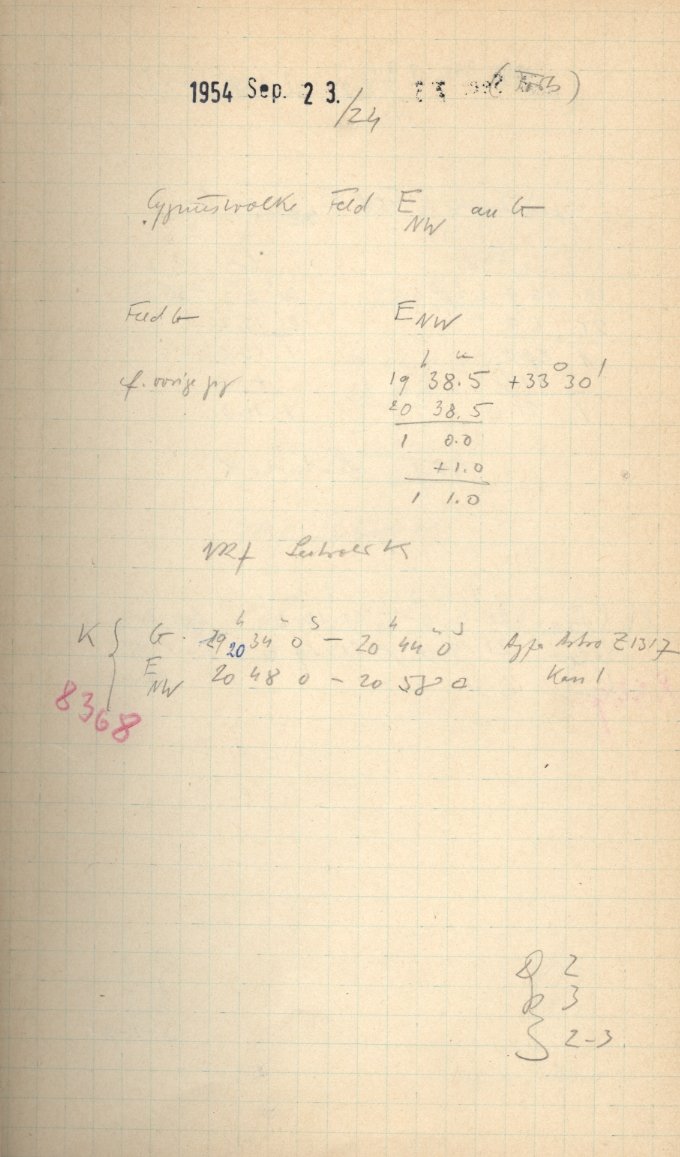 1954 Sep. 23. /24
Cygnuswolke Feld E NW an G
Feld G E NW
19 h 38.5 m +33° 30'
20 38.5
1 0.0
+1.0
1 1.0
K { G. 20 h 34 m 0 s – 20 h 44 m 0 s Agfa Astro Z1317
E NW 20 48 0 – 20 58 0 Kass 1
8368
2
3
2-3